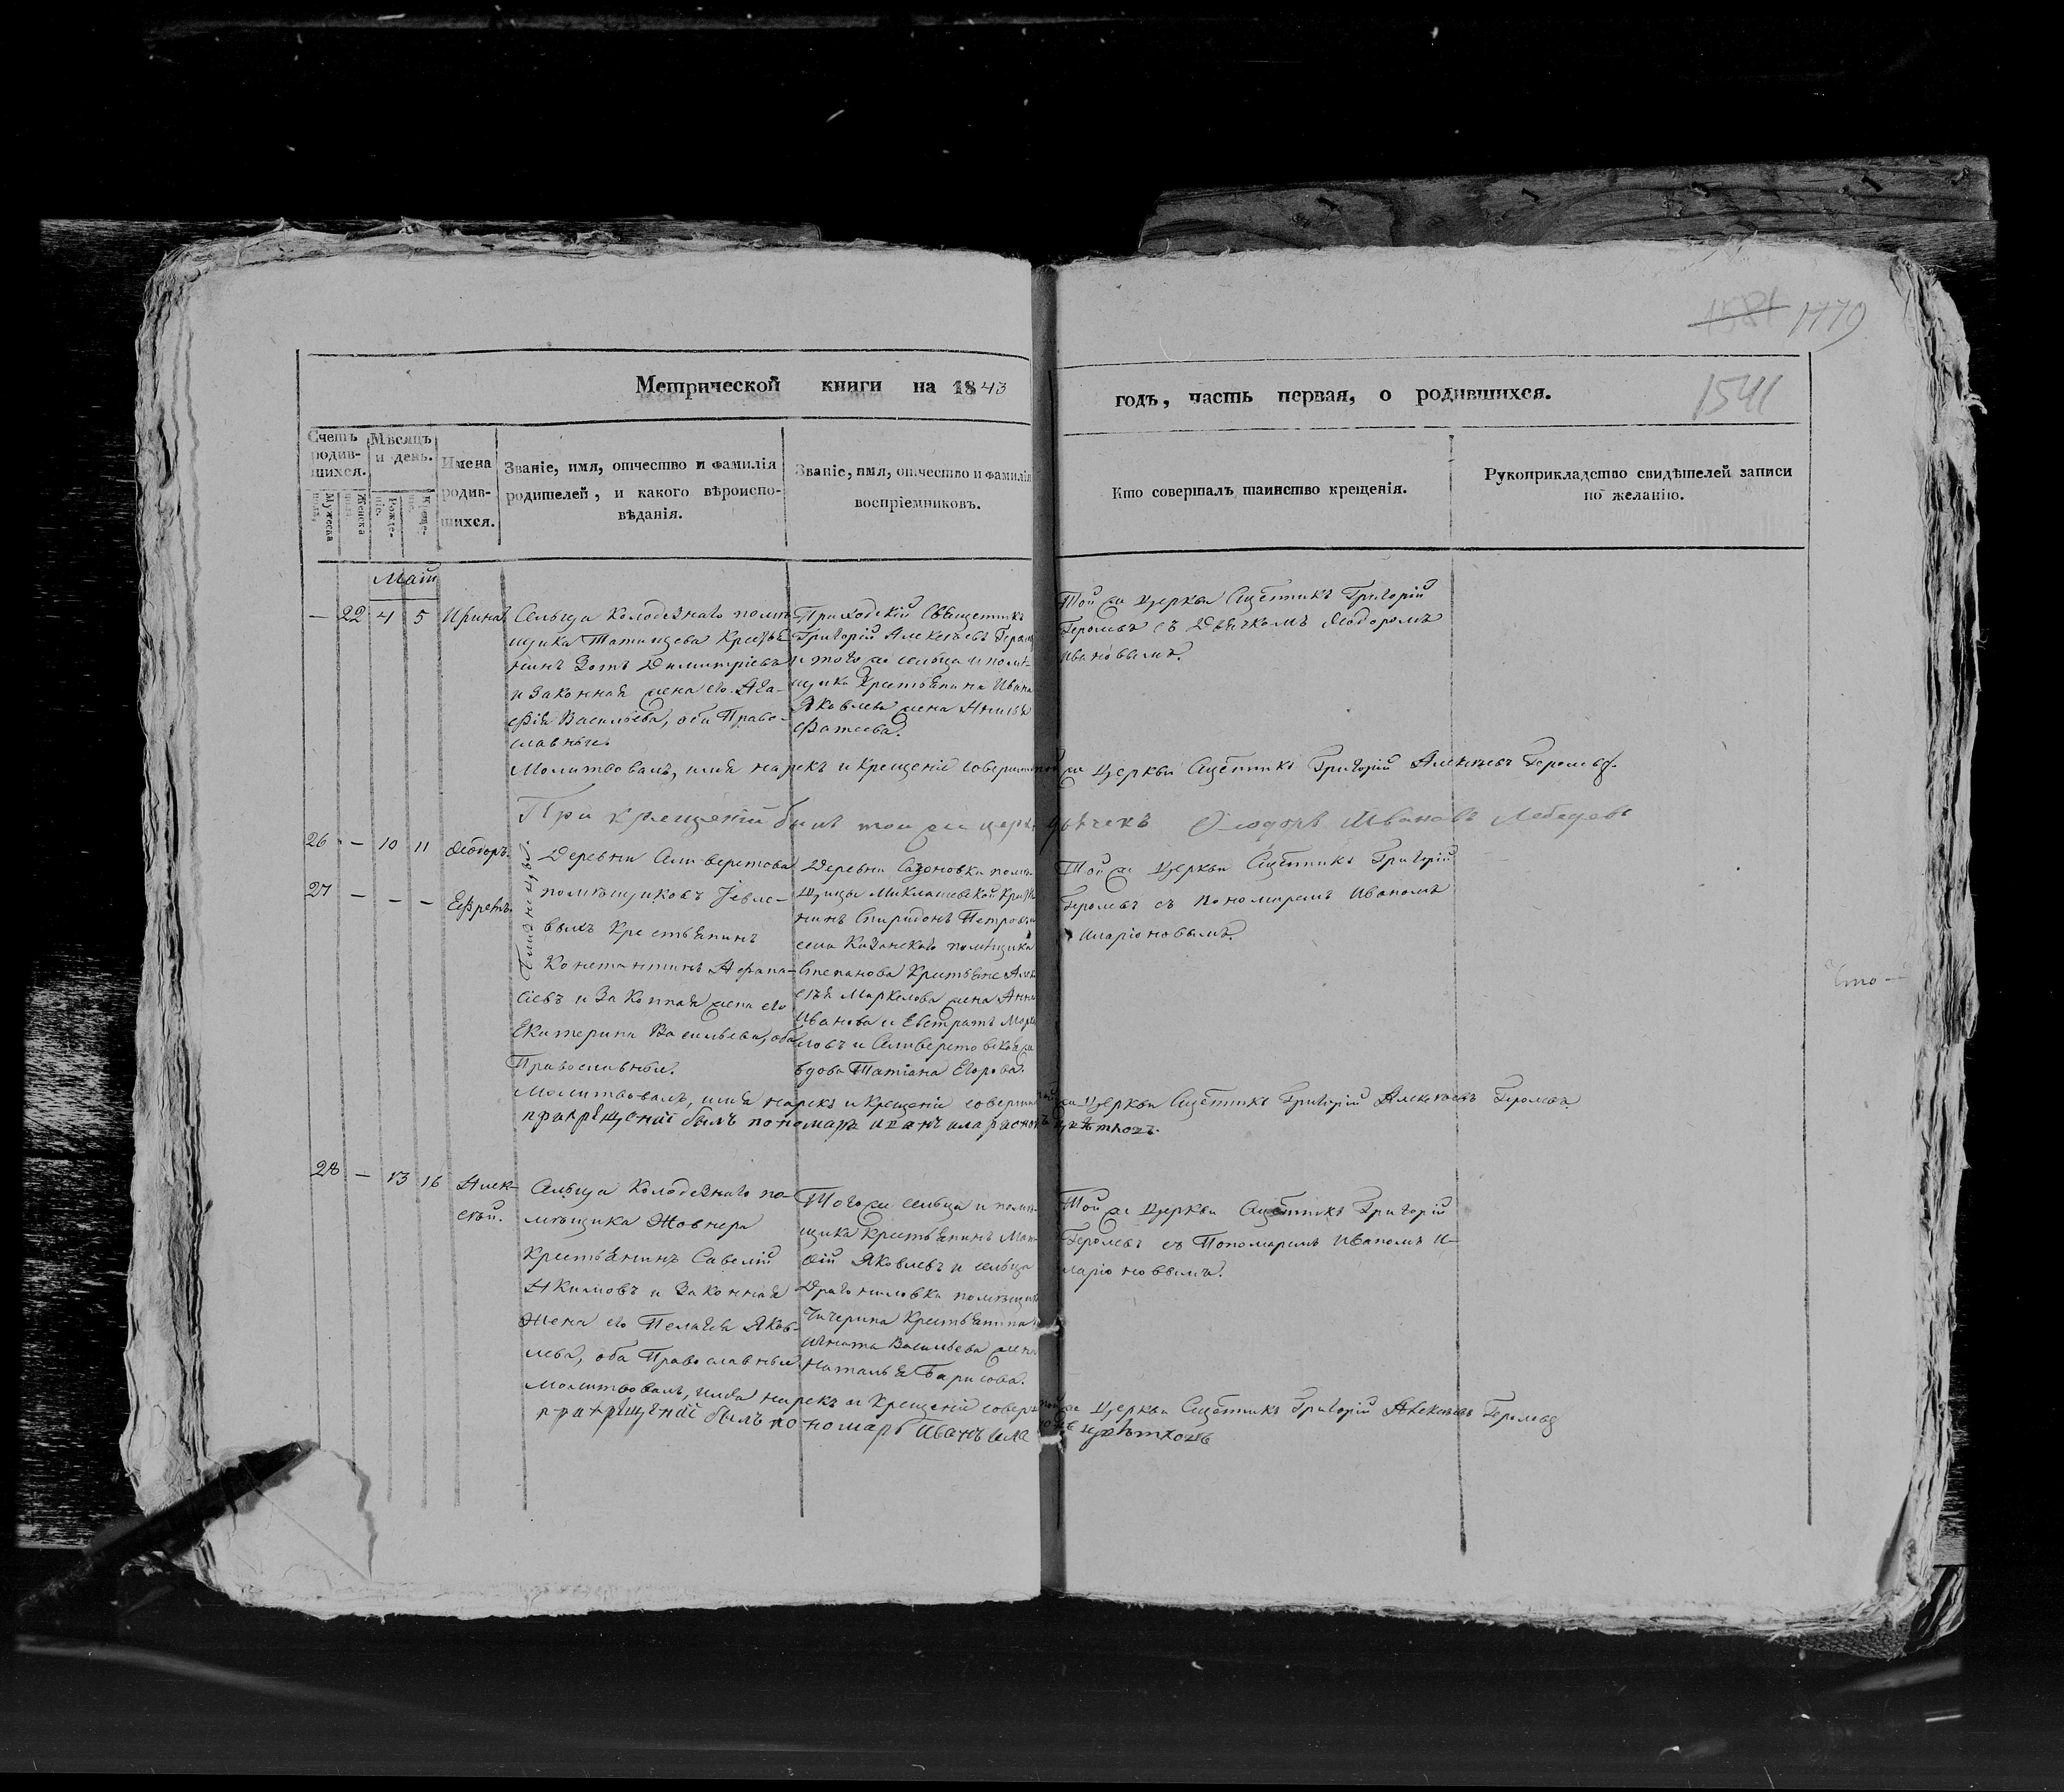 1581 1779
Метрической книги на 1843
годъ, часть первая, о родившихся.
1541
Счетъ родив-шихся.
Мужеска пола.
Женска пола.
Мѣсяцъ и день.
Рожде-нія.
Креще-нія.
Имена родив-шихся.
Званіе, имя, отчество и фамилія
родителей, и какого вѣроиспо-
вѣданія.
Званіе, имя, отчество и фамилія
воспріемниковъ.
Кто совершалъ таинство крещенія.
Рукоприкладство свидѣтелей записи
по желанію.
Маій
— 22 4 5 Ирина
Сельца Колодезнаго помѣ-
щика Татищева Крестья-
нинъ Зотъ Димитріевъ
и законная жена его Ага-
фія Васильева, оби Право-
славные.
Приходскій Священникъ
Григорій Алексѣевъ
и того же сельца и помѣ-
щика Крестьянина Ивана
Яковлева жена Анисья
Фатеева.
Той же Церкви Сщенникъ Григорій
съ Дьячкомъ Ѳеодоромъ
Ивановымъ.
Молитвовалъ, имя нарекъ и Крещеніе совершилъ той же Церкви Сщенникъ Григорій Алексѣевъ
При крещеніи былъ той же церкви дьячекъ Ѳеодоръ Ивановъ Лебедевъ
26 — 10 11 Ѳеодоръ.
27 — — — Ефремъ.
Близнецы.
Деревни Селиверстова
помѣщиковъ
выхъ Крестьянинъ
Константинъ Афана-
сіевъ и Законная жена его
Екатерина Васильева, оба
Православные.
Деревни Сазоновки помѣ-
щицы Миклашевской Крестья-
нинъ Спиридонъ Петровъ и
села Казанскаго помѣщика
Степанова Крестьяне Алек-
сѣя Маркелова жена Анна
Иванова и Евстратъ
и Селиверстовской же
вдова Татіана Егорова.
Той же Церкви Сщенникъ Григорій
съ Пономаремъ Иваномъ
Иларіоновымъ.
Что—
Молитвовалъ, имя нарекъ и Крещеніе совершилъ той же Церкви Сщенникъ Григорій Алексѣевъ
прикрещеніи былъ пономарь иванъ иларионовъ цвѣтковъ.
28 — 13 16 Алек-
сѣй.
Сельца Колодезнаго по-
мѣщика Жовнера
Крестьянинъ Савелій
Акимовъ и Законная
Жена его Пелагея Яков-
лева, оба Православные.
Того же сельца и помѣ-
щика Крестьянинъ Мат-
ѳій Яковлевъ и сельца
Драгониловки помѣщика
Чичерина Крестьянина
Игната Васильева жена
Наталья Барисова.
Той же Церкви Сщенникъ Григорій
съ Пономаремъ Иваномъ И-
ларіоновымъ.
Молитвовалъ, имя нарекъ и Крещеніе совершилъ той же Церкви Сщенникъ Григорій Алексѣевъ
прикрещеніи былъ пономарь Иванъ цвѣтковъ